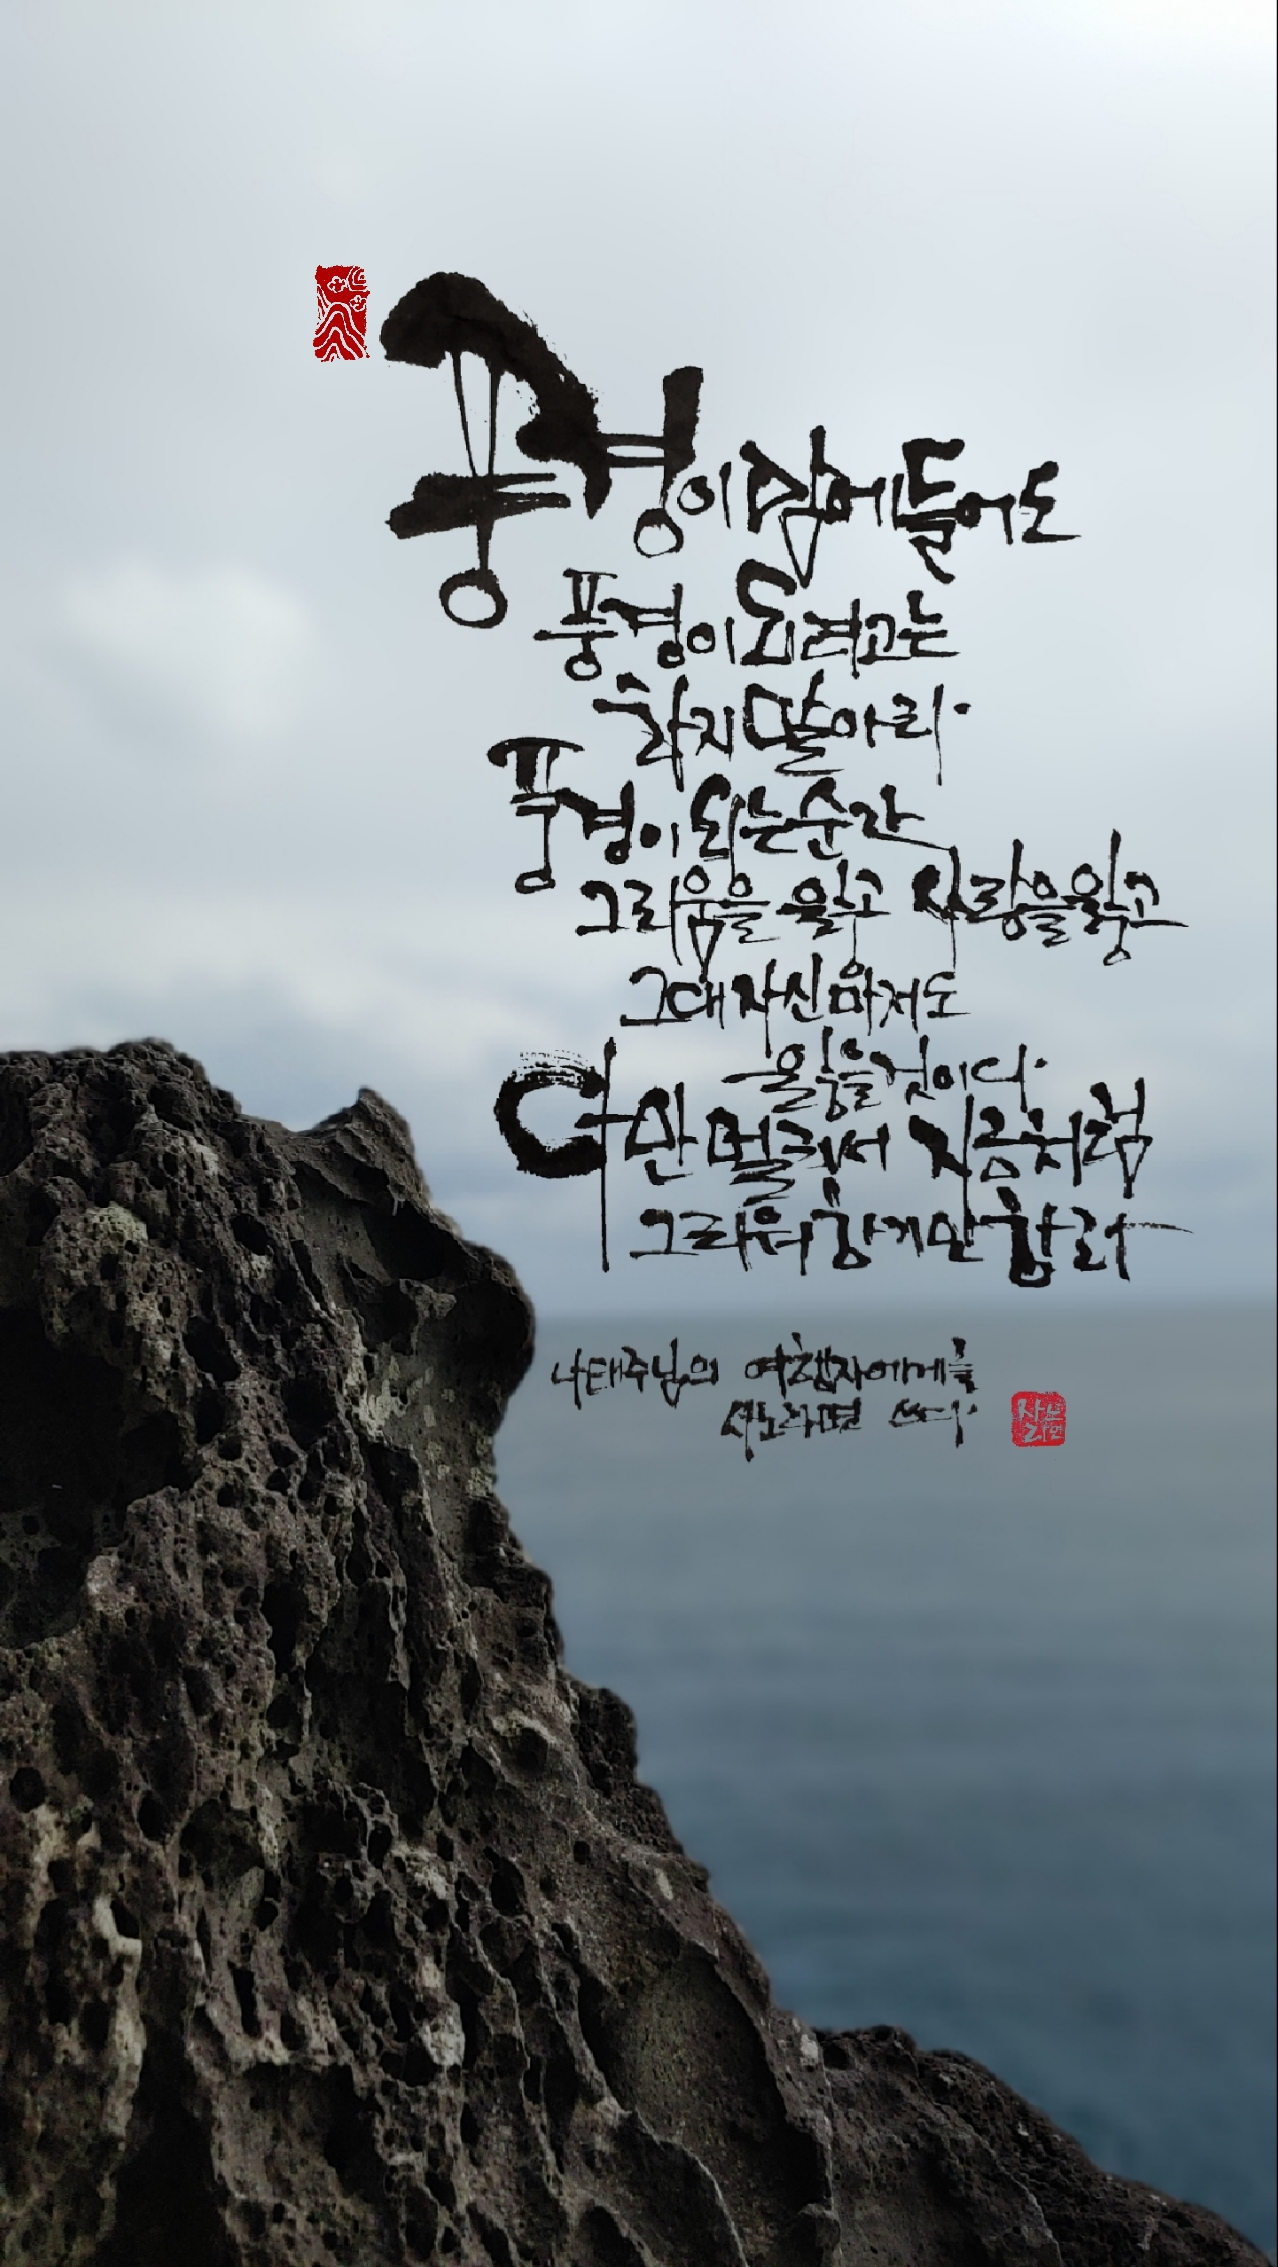 풍경이 맘에 들어도
풍경이 되려고는
하지 말아라.
풍경이 되는 순간
그리움을 잃고 사랑을 잃고
그대 자신마저도
잃을 것이다.
다만 멀리서 지금처럼
그리워하기만 하라
나태주님의 여행자에게를
쓰다.